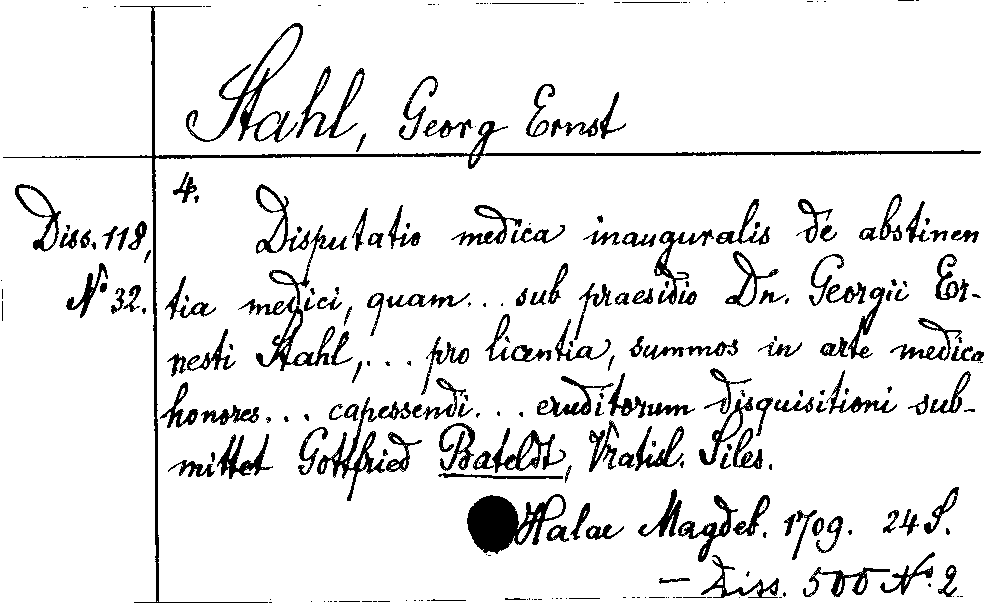 Stahl, Georg Ernst
4.
Diss. 118,
No 32.
Disputatio medica inauguralis de abstinen
tia medici, quam... sub praesidio Dn. Georgii Er-
nesti Stahl,... pro licentia, summos in arte medica
honores... capessendi... eruditorum disquisitioni sub-
mittet Gottfried Bateldt, Vratisl. Siles.
Halae Magdeb. 1709. 24 S.
— Diss. 500 No. 2